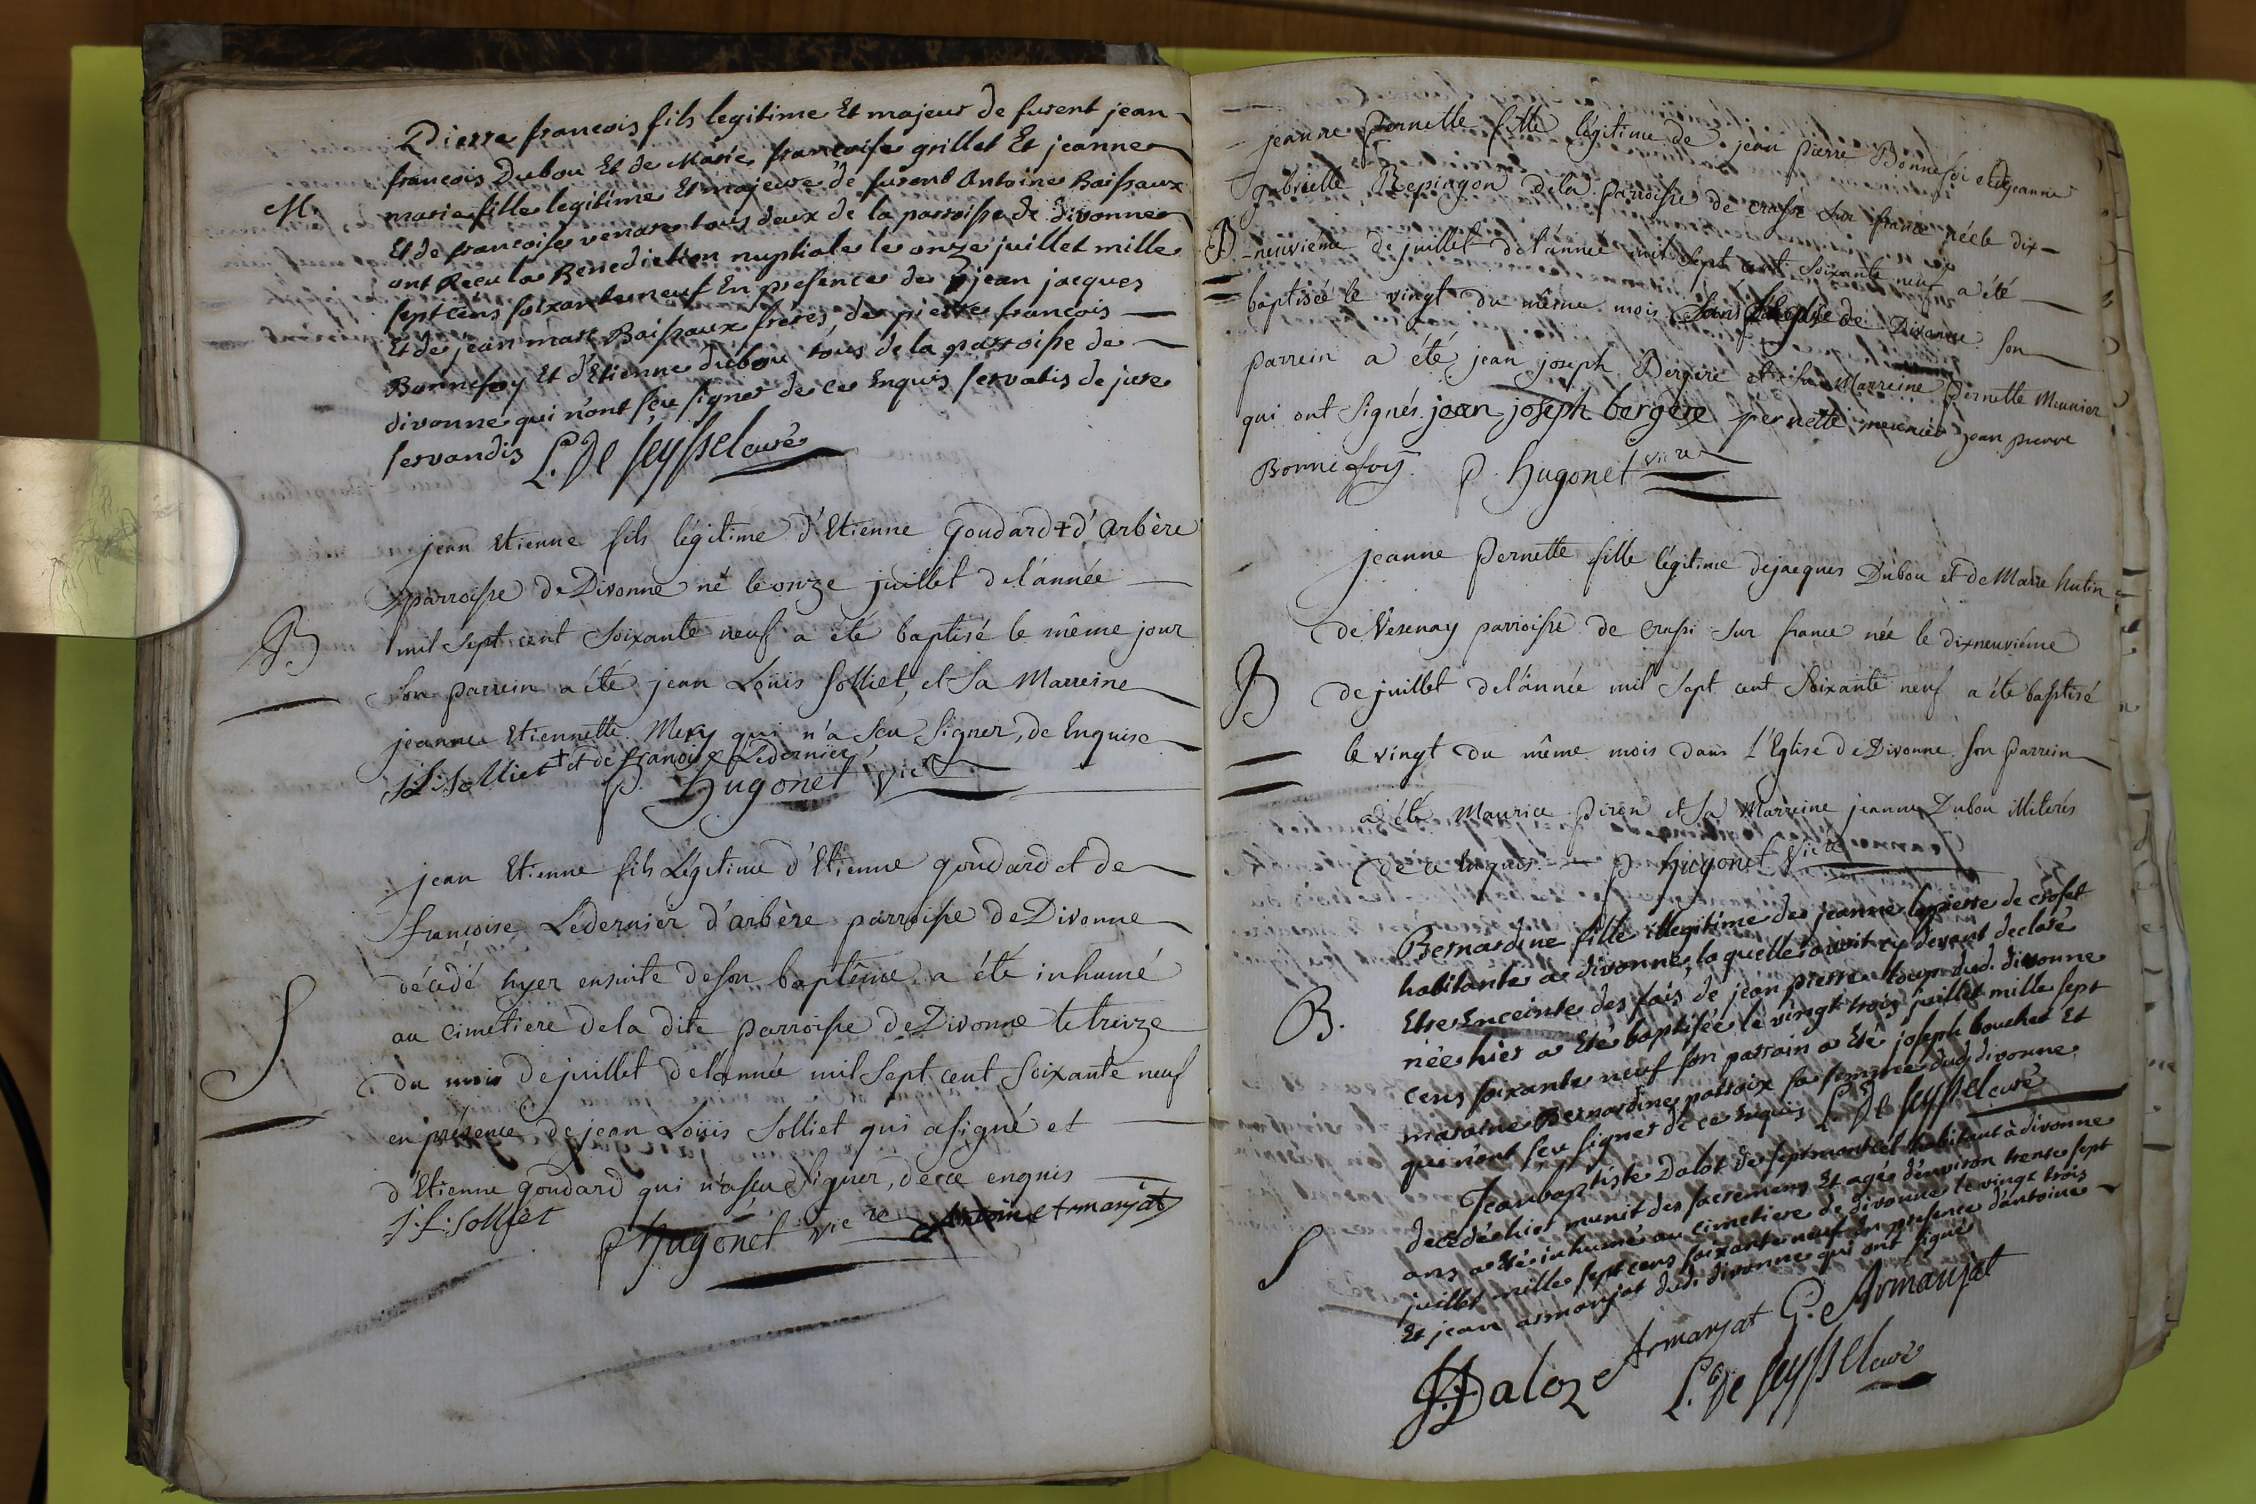 Pierre francois fils legitime Et majeur de furent jean
francois Dubou Et de Marie francoise grillet Et jeanne
M.
marie fille legitime Et majeure de furent Antoine Baissaux
Et de francoise venare tous deux de la parroisse de divonne
ont Recu la Benediction nuptiale le onze juillet mille
sept cens soixante neuf En presence de jean jacques
Et de jean marc Baissaux freres de pierre francois
Bonnefoy Et d'Etienne dubou tous de la parroisse de
divonne qui n'ont sçu signer de ce Enquis servatis de jure
servandis L. De seyssel curé
jean Etienne fils légitime d'Etienne Goudard + d'Arbère
parroisse de Divonne né le onze juillet de l'année
B
mil sept cent soixante neuf a été baptisé le même jour
son parrein a été jean Loüis Solliet, et sa Marreine
jeanne Etiennette Mery qui n'a scu signer, de Enquise
+ et de françoise Ledernier
J: L: Solliet P. Hugonet vic.re
jean Etienne fils Légitime d'Etienne goudard et de
françoise Lédernier d'arbère parroisse de Divonne
décédé hyer ensuite de son baptême a été inhumé
S
au cimetiere de la dite parroisse de Divonne le treize
du mois de juillet de l'année mil sept cent soixante neuf
en présence de jean Loüis Solliet qui a signé et
d'Etienne goudard qui n'a scu signer, de ce enquis
J: L: Solliet P. Hugonet vic.re Antoine Armanjat
jeanne Pernette fille légitime de jean Pierre Bonnefoi et de jeanne
gabrielle Repingon de la parroisse de crassi sur france née le dix-
B
-neuvieme de juillet de l'année mil sept cent soixante neuf a été
baptisée le vingt du même mois dans l'Eglise de Divonne son
parrein a été jean joseph Bergere et sa Marreine Pernette Meunier
qui ont signés. jean joseph bergere pernette meunier jean pierre
Bonnefoy. P. Hugonet vic.re
jeanne Pernette fille légitime de jacques Dubou et de Marie hutin
de Vesenay parroisse de crassi sur france née le dixneuvième
B
de juillet de l'année mil sept cent soixante neuf a été baptisé
le vingt du même mois dans l'Eglise de Divonne son parrein
a été Maurice Piron et sa Marreine jeanne Dubou illiterés
de ce enquis. P. Hugonet Vic.re
Bernardine fille illegitime de jeanne lapierre de croset
habitante a divonne, laquelle avoit cy devant declaré
Etre Enceinte des fais de jean pierre dud. divonne
B.
née hier a Eté baptisée le vingt trois juillet mille sept
cens soixante neuf son parrain a Eté joseph bouchet Et
maraine Bernardine parroix sa femme dud. divonne
qui n'ont sçu signer de ce Enquis L. De seyssel curé
Jean baptiste Dalot de septmoncel habitant à divonne
decedé hier munit des sacremens Et agé d'environ trente sept
ans a Eté inhumé au cimetiere de divonne le vingt trois
S
juillet mille sept cens soixante neuf En presence d'antoine
Et jean armanjat dud. divonne qui ont signé
Daloz Armanjat G. Armanjat
L. De seyssel curé